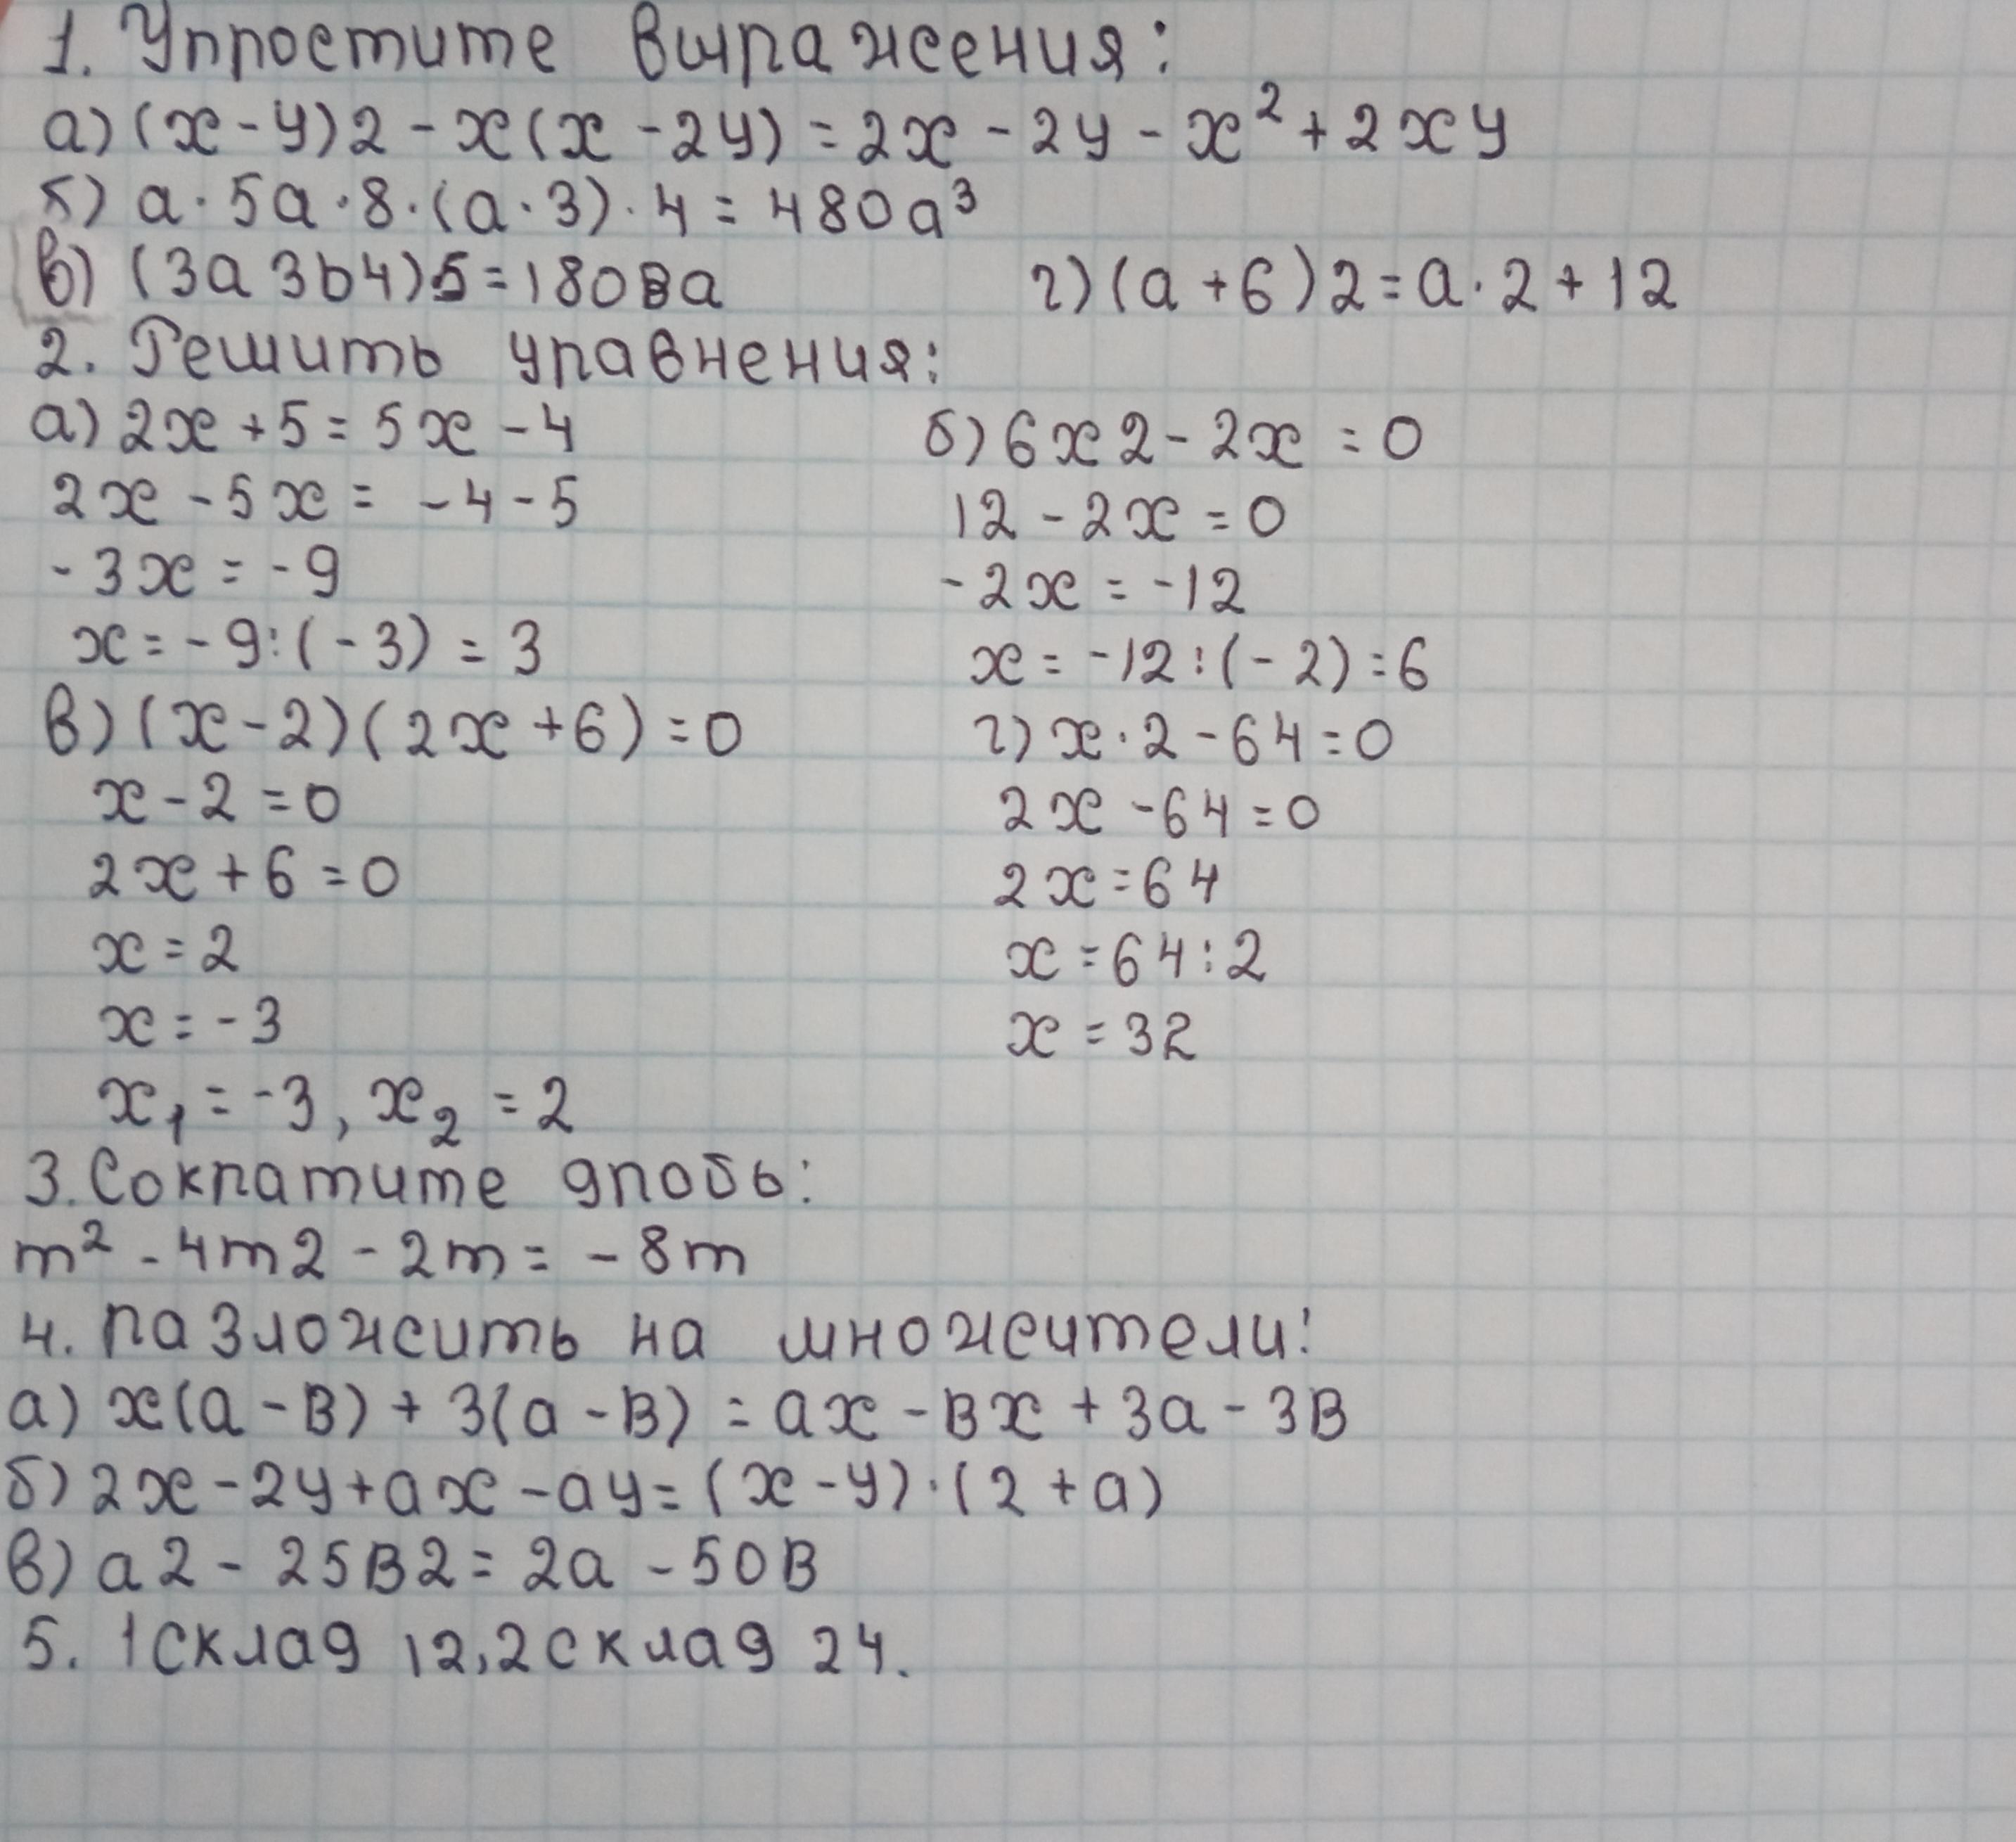 1. Упростите выражения:
а) (x - y)2 - x(x - 2y) = 2x - 2y - x² + 2xy
б) a · 5a · 8 · (a · 3) · 4 = 480a³
в) (3a3b4)5 = 180вa г) (a + 6)2 = a · 2 + 12
2. Решить уравнения:
а) 2x + 5 = 5x - 4 б) 6x2 - 2x = 0
2x - 5x = -4 - 5 12 - 2x = 0
-3x = -9 -2x = -12
x = -9 : (-3) = 3 x = -12 : (-2) = 6
в) (x - 2)(2x + 6) = 0 г) x · 2 - 64 = 0
x - 2 = 0 2x - 64 = 0
2x + 6 = 0 2x = 64
x = 2 x = 64 : 2
x = -3 x = 32
x₁ = -3, x₂ = 2
3. Сократите дробь:
m² - 4m2 - 2m = -8m
4. разложить на множители:
а) x(a - в) + 3(a - в) = ax - вx + 3a - 3в
б) 2x - 2y + ax - ay = (x - y) · (2 + a)
в) a2 - 25в2 = 2a - 50в
5. 1 склад 12, 2 склад 24.